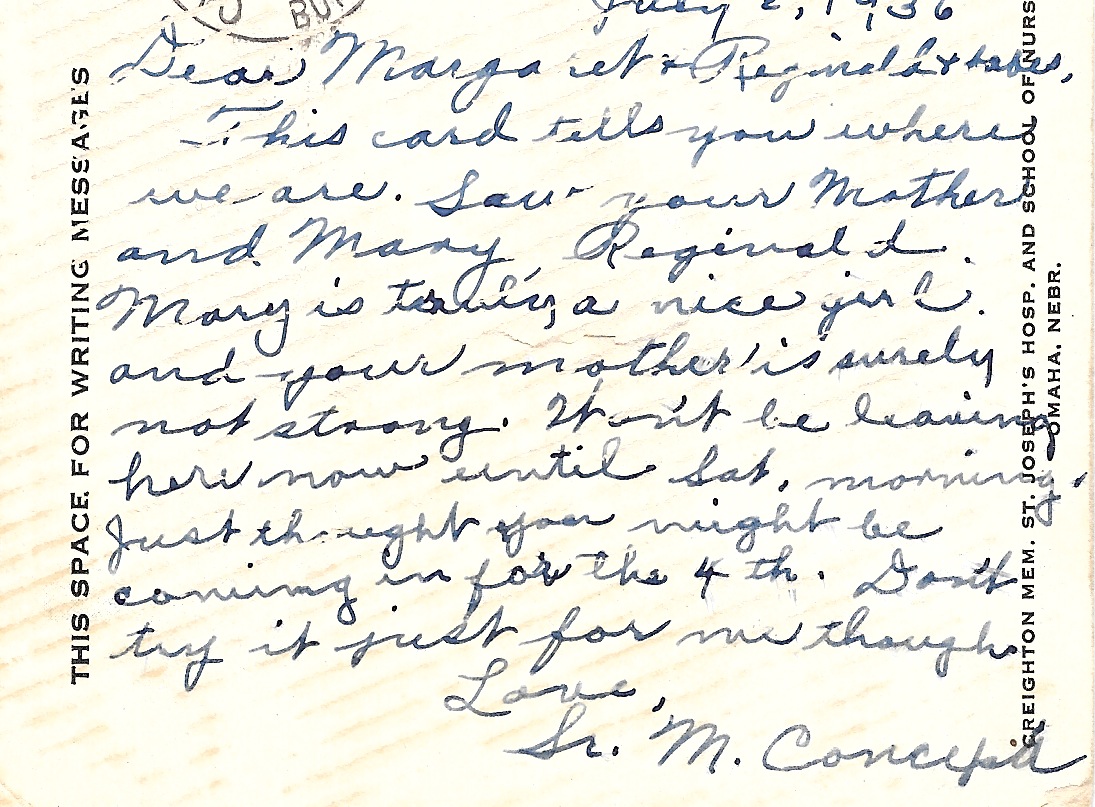 July 2, 1936
Dear Margaret & Reginald & babes,
This card tells you where
we are. Saw your Mother
and Mary Reginald.
Mary is truly a nice girl.
and your mother is surely
not strong. Won't be leaving
here now until Sat. morning.
Just thought you might be
coming in for the 4 th. Don't
try it just for me though.
Love,
Sr. M. Concepta
THIS SPACE FOR WRITING MESSAGES
CREIGHTON MEM. ST. JOSEPH'S HOSP. AND SCHOOL OF NURS
OMAHA, NEBR.